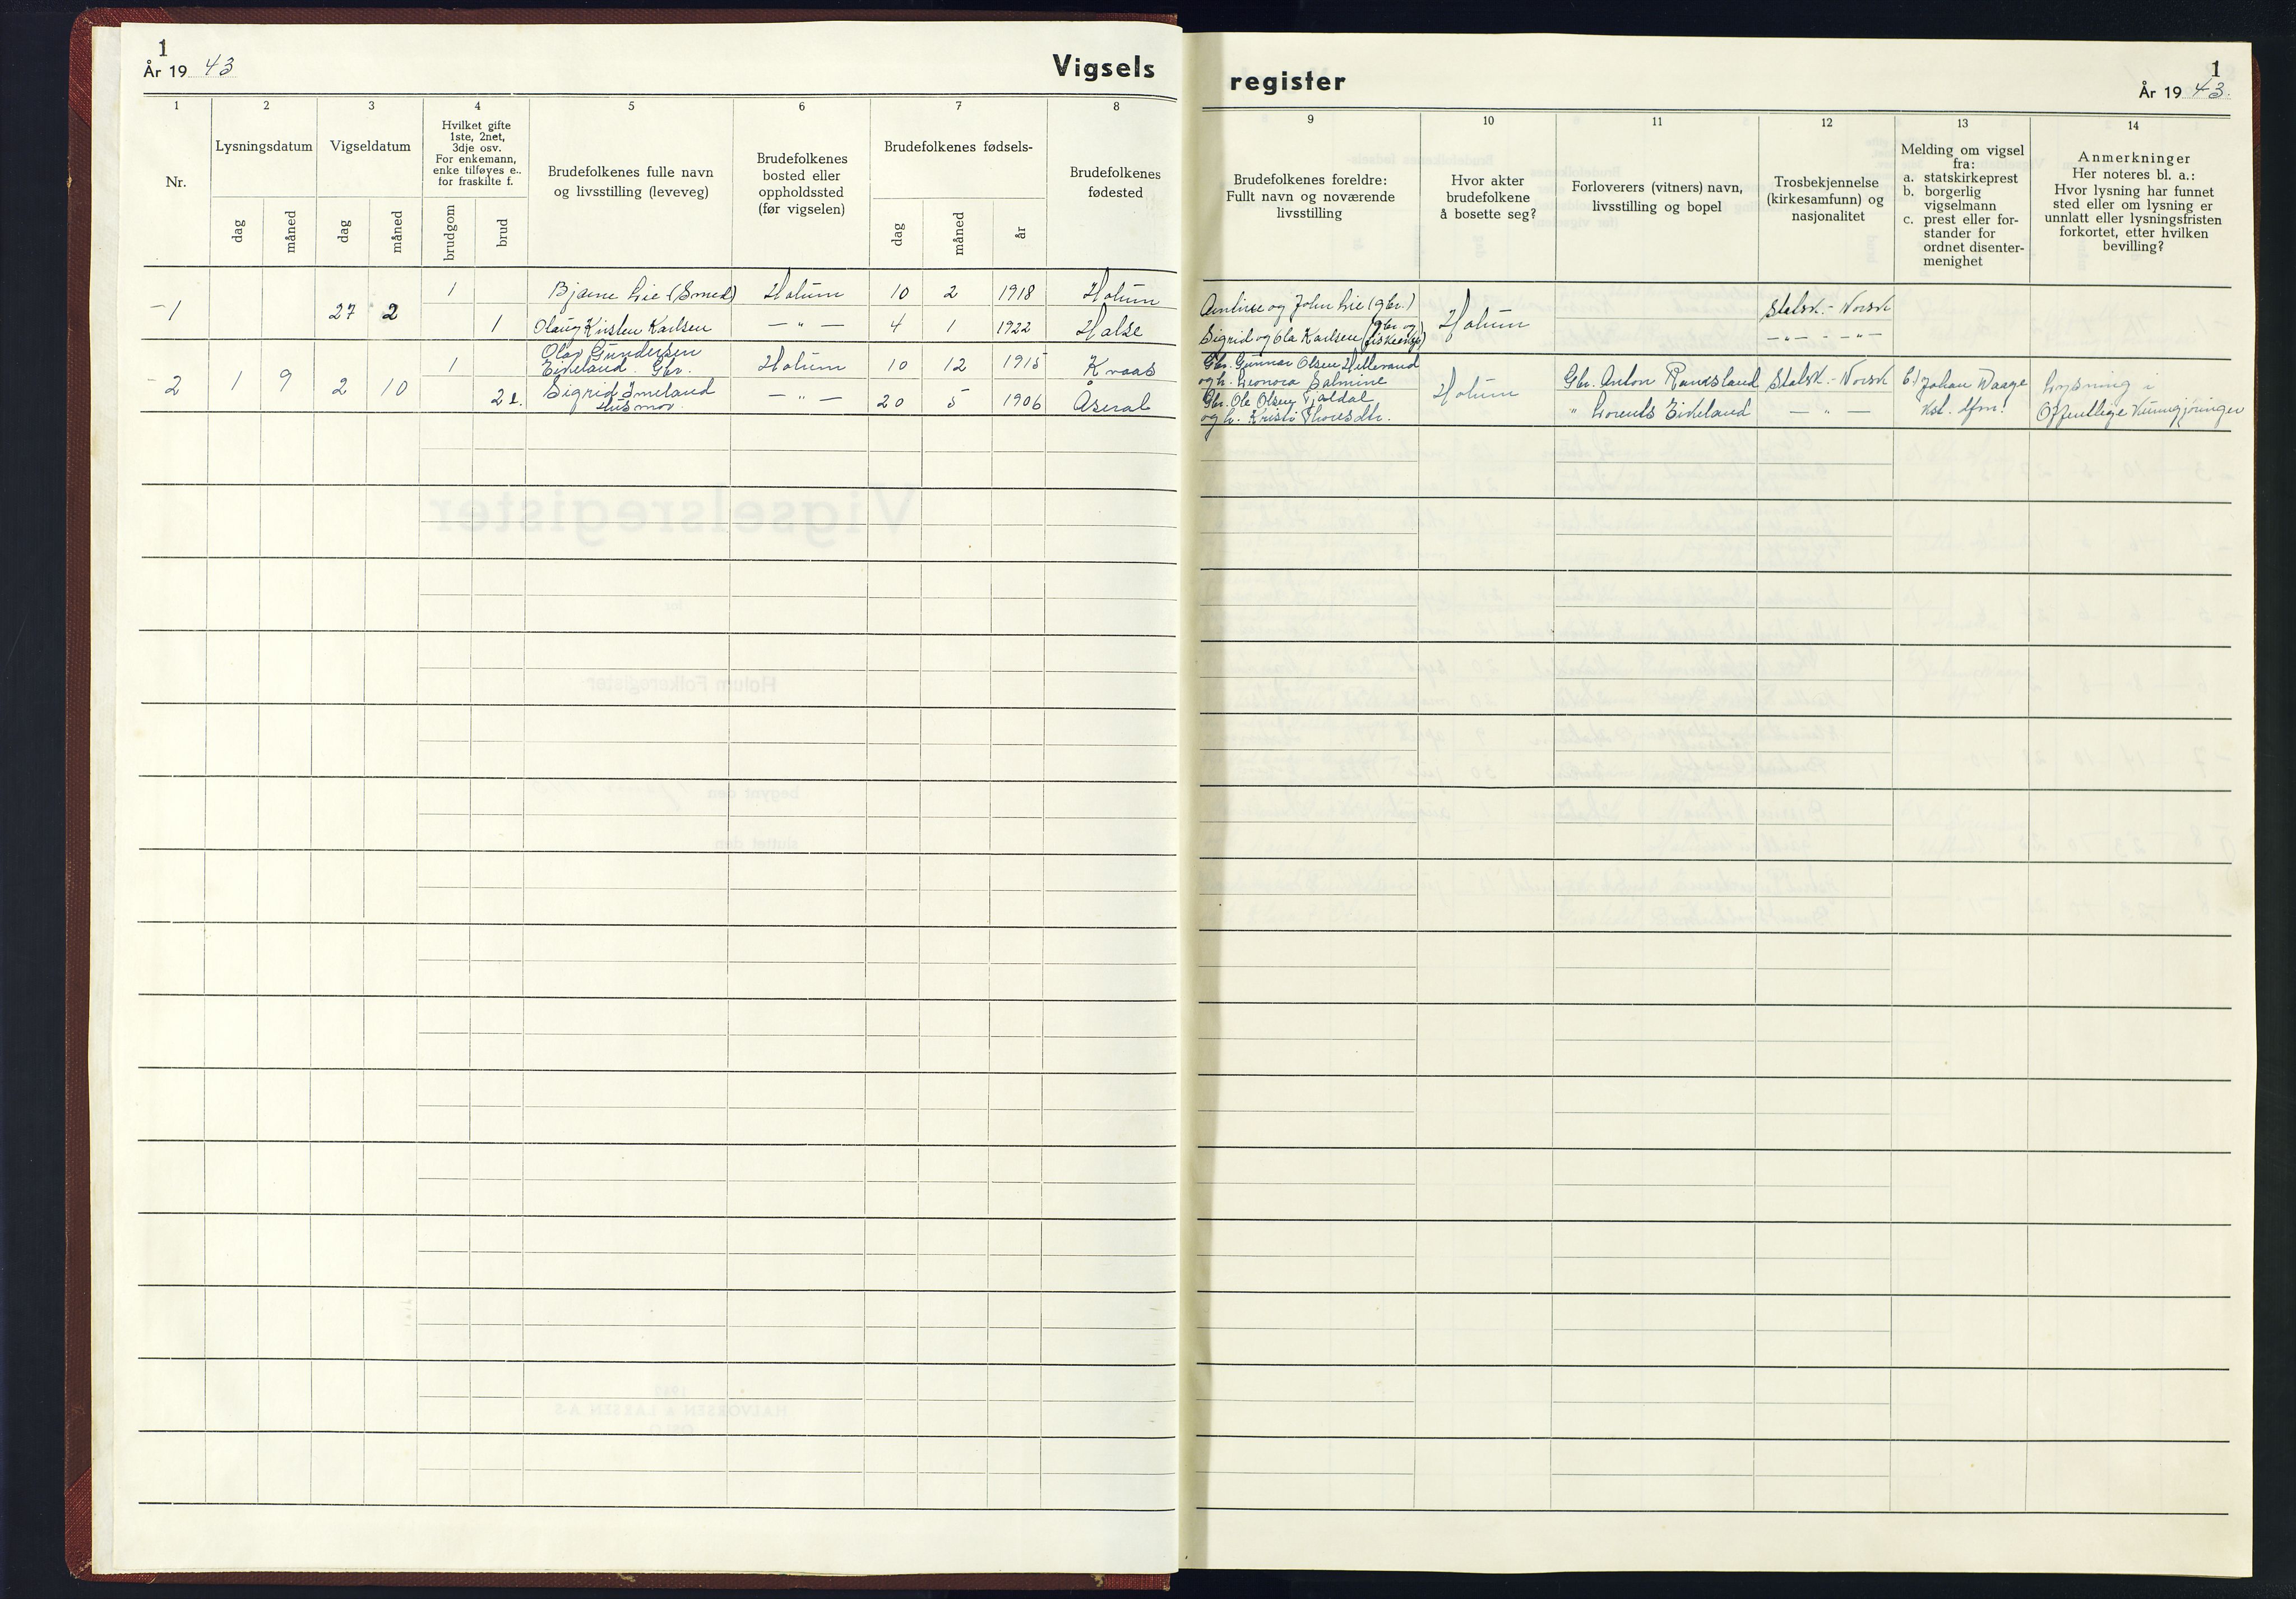 1
År 19 43
Vigsels
1 2 3 4 5 6 7 8
Nr.
Lysningsdatum
dag måned
Vigseldatum
dag måned
Hvilket gifte
1ste, 2net,
3dje osv.
For enkemann,
enke tilføyes e..
for fraskilte f.
brudgom brud
Brudefolkenes fulle navn
og livsstilling (leveveg)
Brudefolkenes
bosted eller
oppholdssted
(før vigselen)
Brudefolkenes fødsels-
dag måned år
Brudefolkenes
fødested
1 27 2 1 Bjarne Lie (Smed) Holum 10 2 1918 Holum
1 Olaug Kirsten Karlsen — " — 4 1 1922 Halse
2 1 9 2 10 1 Olav Gundersen
Eikeland. Gbr. Holum 10 12 1915 Kvaas
2 e. Sigrid Imeland
Husmor. — " — 20 5 1906 Åseral
register
1
År 19 43.
9 10 11 12 13 14
Brudefolkenes foreldre:
Fullt navn og noværende
livsstilling
Hvor akter
brudefolkene
å bosette seg?
Forloverers (vitners) navn,
livsstilling og bopel
Trosbekjennelse
(kirkesamfunn) og
nasjonalitet
Melding om vigsel
fra:
a. statskirkeprest
b. borgerlig
vigselmann
c. prest eller for-
stander for
ordnet disenter-
menighet
Anmerkninger
Her noteres bl. a.:
Hvor lysning har funnet
sted eller om lysning er
unnlatt eller lysningsfristen
forkortet, etter hvilken
bevilling?
og John Lie (gbr.) Holum Statsk. - Norsk
Sigrid og Ola Karlsen (gbr. og — " — - — " —
Gbr. Gunnar Olsen
og h. Leonora Salmine Holum Gbr. Anton Ramsland Statsk. - Norsk b) Johan Waage Lysning i
Gbr. Ole Olsen
og h. Kristi Thoresdtr. " Lorents Eikeland — " — Kst. lfm. Offentlige Kunngjøringer